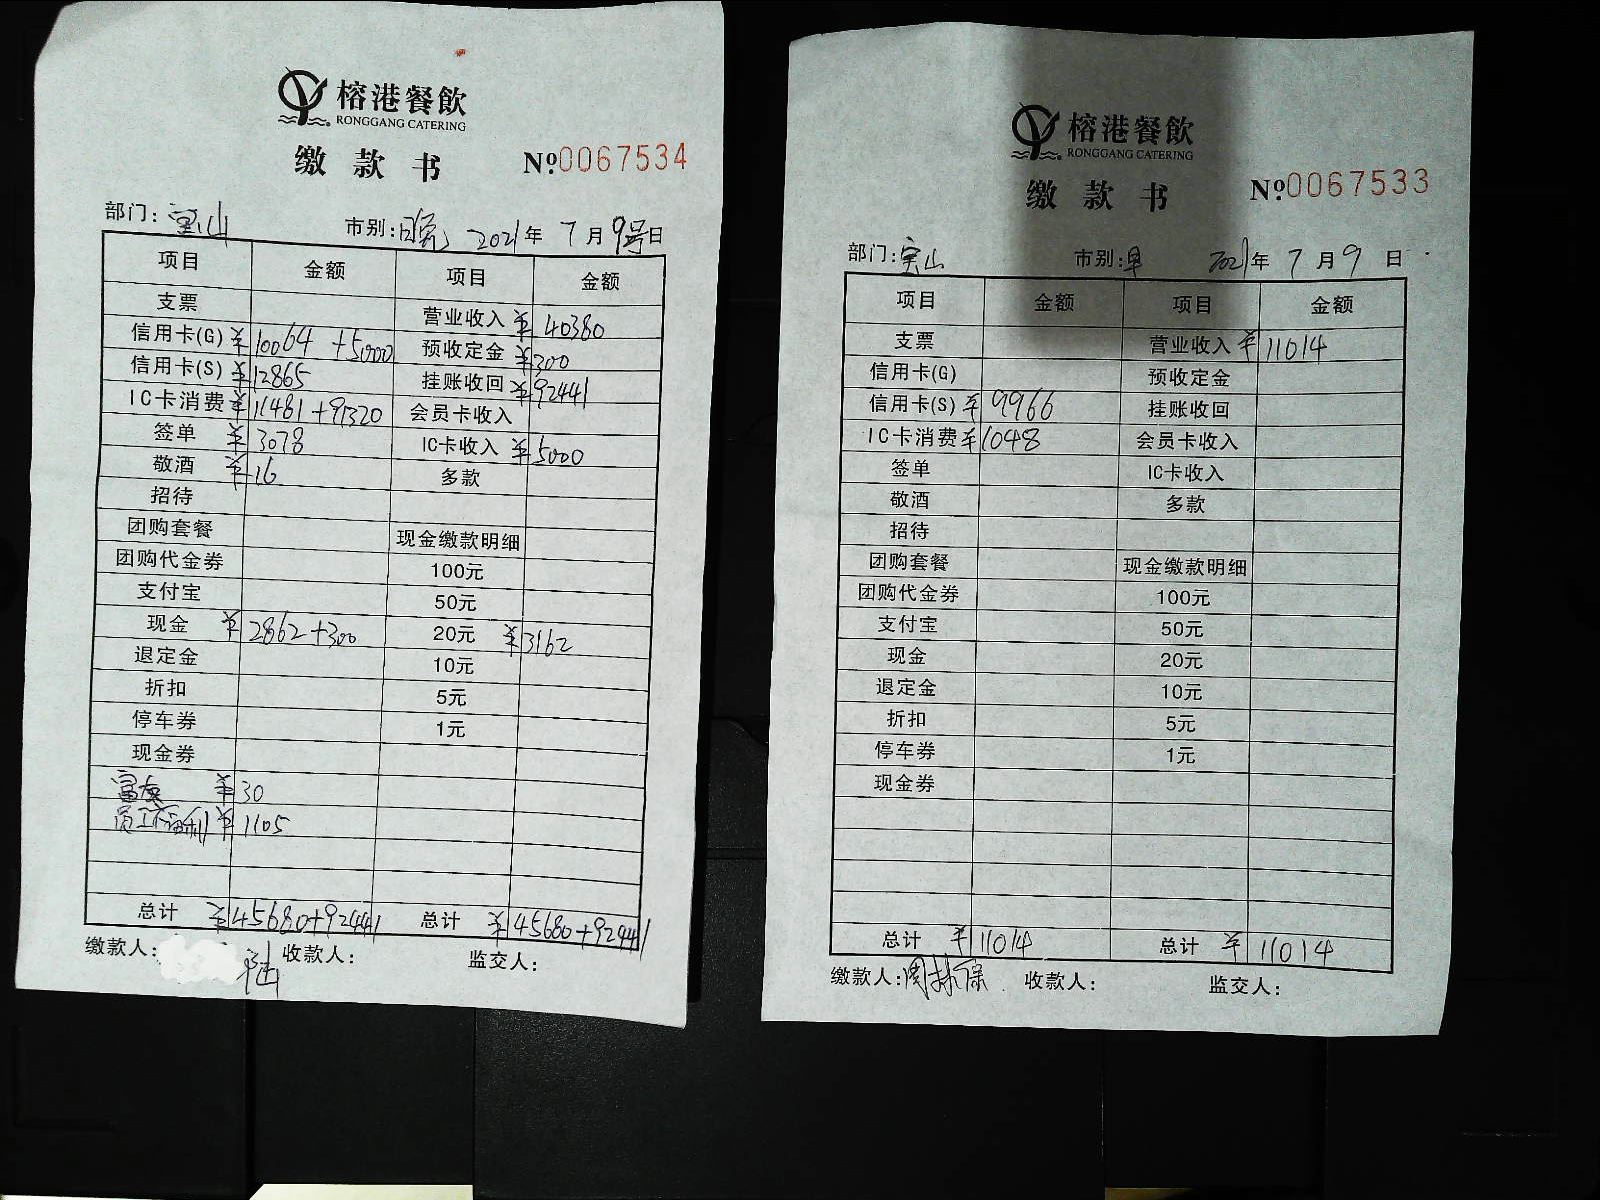 榕港餐飲
RONGGANG CATERING
缴款书 №0067534
部门: 宝山 市别: 晚 2021年7月9号日
项目 金额 项目 金额
支票 营业收入 ¥40380
信用卡(G) ¥10064+5000 预收定金 ¥300
信用卡(S) ¥12865 挂账收回 ¥92441
IC卡消费 ¥11481+91320 会员卡收入
签单 ¥3078 IC卡收入 ¥5000
敬酒 ¥16 多款
招待
团购套餐 现金缴款明细
团购代金券 100元
支付宝 50元
现金 ¥2862+300 20元 ¥3162
退定金 10元
折扣 5元
停车券 1元
现金券
¥30
员工福利 ¥1105
总计 ¥45680+92441 总计 ¥45680+92441
缴款人: 陆 收款人: 监交人:
榕港餐飲
RONGGANG CATERING
缴款书 №0067533
部门: 宝山 市别: 早 2021年7月9日
项目 金额 项目 金额
支票 营业收入 ¥11014
信用卡(G) 预收定金
信用卡(S) ¥9966 挂账收回
IC卡消费 ¥1048 会员卡收入
签单 IC卡收入
敬酒 多款
招待
团购套餐 现金缴款明细
团购代金券 100元
支付宝 50元
现金 20元
退定金 10元
折扣 5元
停车券 1元
现金券
总计 ¥11014 总计 ¥11014
缴款人: 周林保 收款人: 监交人: